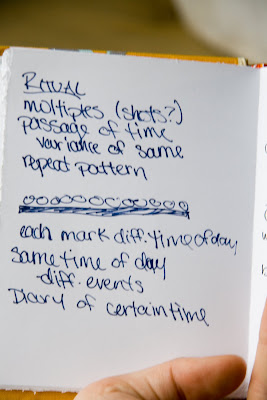 RITUAL
multiples (shots?)
passage of time
variance of same
repeat pattern
each mark diff. time of day
same time of day
diff. events
Diary of certain time